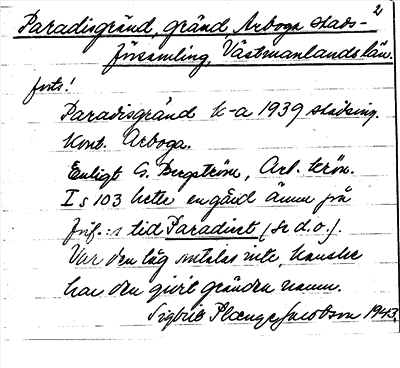 2
Paradisgränd, gränd, Arboga stads-
församling, Västmanlands län.
forts!
Paradisgränd k-a 1939 stadsing.
kont. Arboga.
Enligt G. Bergström, Arb. krön.
I s 103 hette en gård ännu på
förf.:s tid Paradiset (Se d.o.).
Var den låg omtalas inte, kanske
har den givit gränden namn.
Sigbrit Plænge Jacobson 1943.